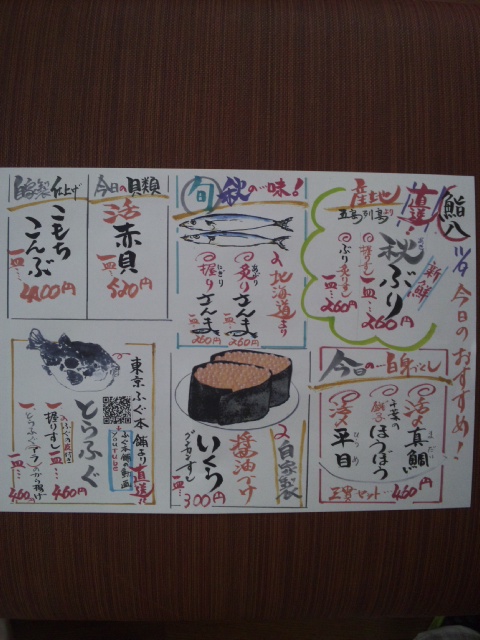 鮨八
11/9 今日のおすすめ!
産地直送!
五島列島より
新鮮
秋ぶり
握りすし
一皿…260円
ぶり炙りすし
一皿…260円
旬 秋の一味!
北海道より
炙りさんま
一皿…260円
握りさんま
一皿…260円
今日の貝類
活赤貝
一皿…520円
自家製仕上げ
こもちこんぶ
一皿…400円
今日の白身づくし
活〆真鯛
千葉の
ほうぼう
活〆平目
三貫セット…460円
自家製
醤油づけ
いくら
グンカンすし
一皿…300円
東京ふぐ本舗より直送!!
ふぐ本舗の動画
YOUTUBE
とらふぐ
握りすし
一皿…460円
とらふぐアラのから揚げ
一皿…460円